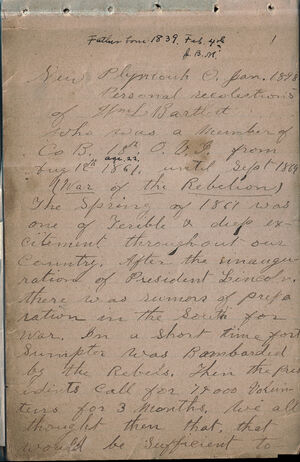 Father born 1839. Feb. 4th
J. B. M.
1
New Plymouth O. Jan. 1898
Personal recolections
of Wm L. Bartlett
who was a Member of
Co B, 18th O. V. I. from
Aug 12th 1861. until Sept 1864
age 22.
(War of the Rebelion)
The Spring of 1861 was
one of Terible & deep ex-
citement throughout our
Country. After the inaugu-
ration of President Lincoln.
there was rumors of prepa
ration in the South for
War. In a short time fort
Sumptor was Bombarded
by the Rebels. Then the pres
idints Call for 75000 Volun-
turs for 3 Months, we all
thought then that, that
would be Sufficient to